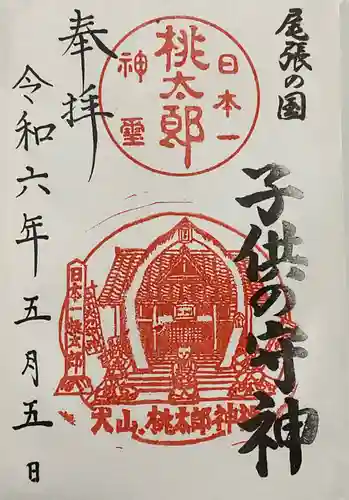 尾張の国
子供の守神
日本一
桃太郎
神霊
奉拝
令和六年五月五日
日本一桃太郎
犬山.桃太郎神社